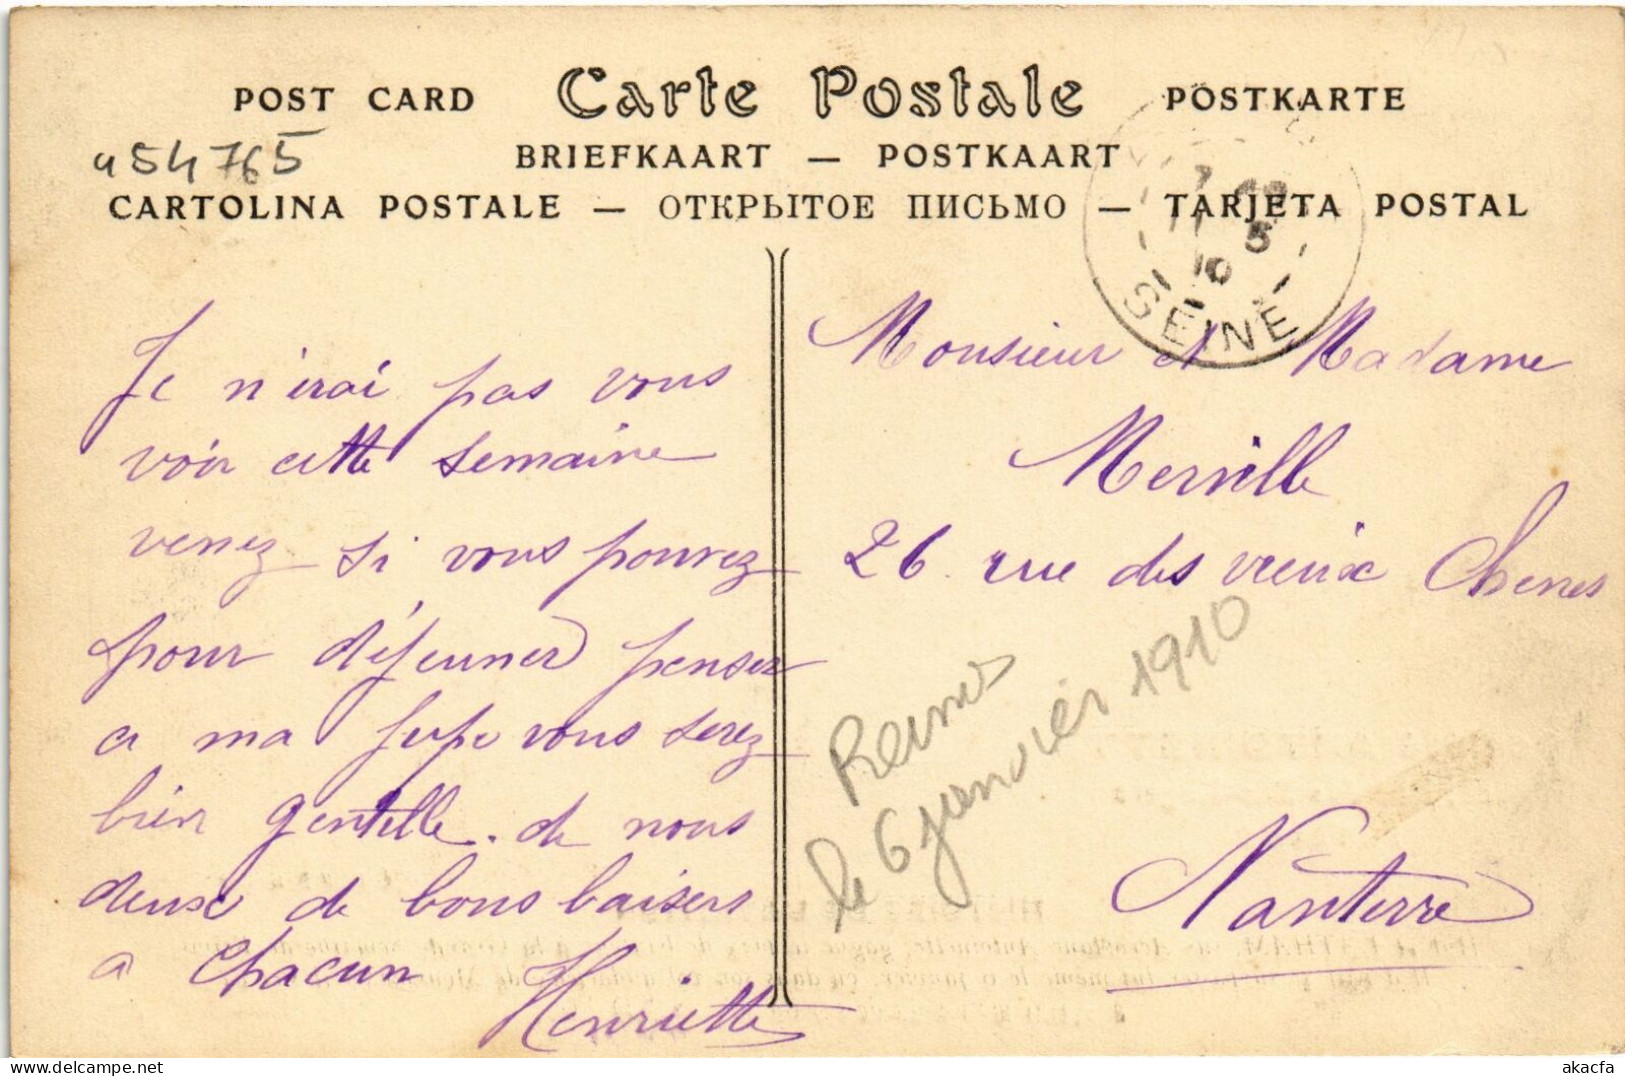 POST CARD Carte Postale POSTKARTE
a 54765
BRIEFKAART — POSTKAART
CARTOLINA POSTALE — ОТКРЫТОЕ ПИСЬМО — TARJETA POSTAL
5
10
SEINE
Je n'irai pas vous
voir cette semaine
venez si vous pouvez
pour déjeuner pensez
a ma jupe vous serez
bien gentille. de nous
deux de bons baisers
a chacun
Henriette
Monsieur et Madame
Merville
26 rue des vieux Chenes
Nanterre
Reims
le 6 janvier 1910
akacfa